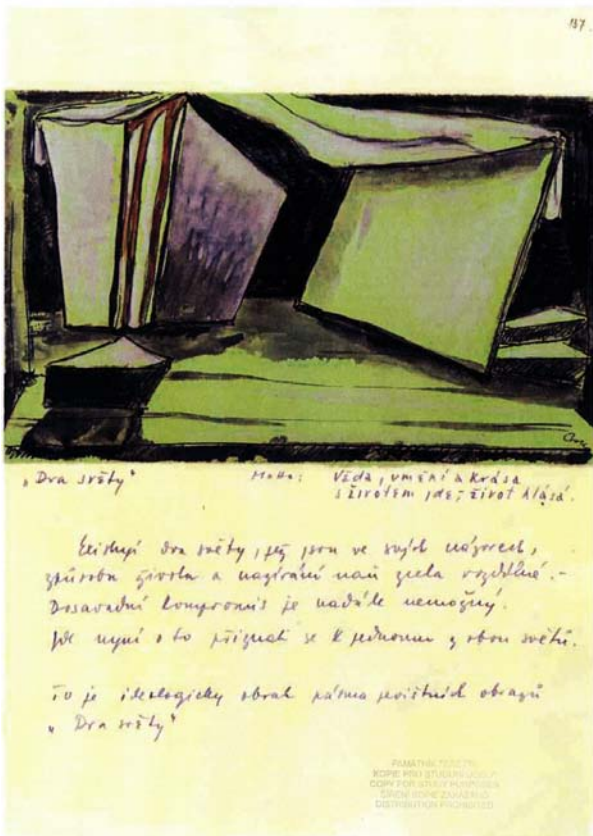 137.
„Dva světy“ Motto: Věda, umění a krása
s životem jde, život hlásá.
Existují dva světy, jež jsou ve svých názorech,
způsobu života a nazírání naň zcela rozdílné.-
Dosavadní kompromis je nadále nemožný.
Jde nyní o to přiznati se k jednomu z obou světů.
To je ideologický obsah pásma jevištních obrazů
„Dva světy“
KOPIE PRO STUDIJNÍ ÚČELY
COPY FOR STUDY PURPOSES
ŠÍŘENÍ KOPIE ZAKÁZÁNO
DISTRIBUTION PROHIBITED